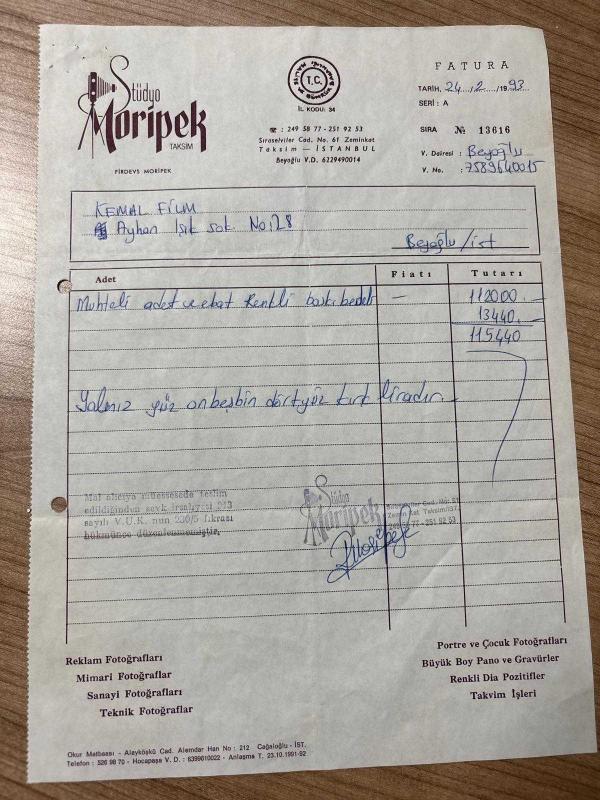 Stüdyo
Moripek
TAKSİM
FİRDEVS MORİPEK
T.C.
İL KODU: 34
☎ : 249 58 77 - 251 92 53
Sıraselviler Cad. No. 61 Zeminkat
Taksim — İSTANBUL
Beyoğlu V.D. 6229490014
FATURA
TARİH. 24../2../1993
SERİ : A
SIRA № 13616
V. Dairesi : Beyoğlu
V. No. : 7589640015
KEMAL FİLM
Ayhan Işık sok No:28
Beyoğlu/ist
Adet Fiatı Tutarı
Muhteli adet ve ebat Renkli baskı bedeli — 112000.—
13440.—
115440
Yalnız yüz onbeşbin dörtyüz kırk liradır.—
Mal alıcıya müessesede teslim
edildiğinden sevk irsaliyesi 213
sayılı V.U.K. nun 230/5 fıkrası
hükmünce düzenlenmemiştir.
Stüdyo
Moripek
Sıraselviler Cad. No: 61
Kat Taksim/İST.
249 58 77 - 251 92 53
Reklam Fotoğrafları
Mimari Fotoğraflar
Sanayi Fotoğrafları
Teknik Fotoğraflar
Portre ve Çocuk Fotoğrafları
Büyük Boy Pano ve Gravürler
Renkli Dia Pozitifler
Takvim İşleri
Okur Matbaası - Alayköşkü Cad. Alemdar Han No : 212 Cağaloğlu - İST.
Telefon : 526 98 70 - Hocapaşa V. D. : 6399010022 - Anlaşma T. 23.10.1991-92